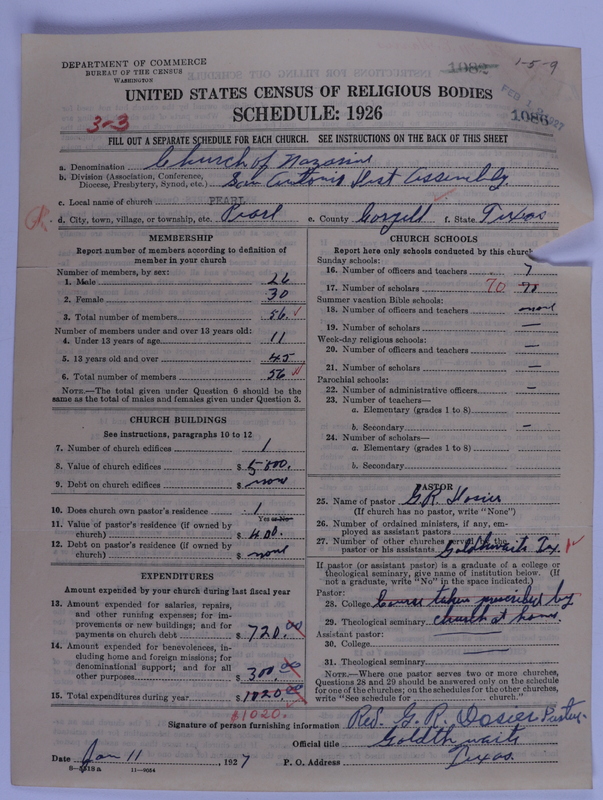 DEPARTMENT OF COMMERCE
BUREAU OF THE CENSUS
WASHINGTON
1082
1-5-9
UNITED STATES CENSUS OF RELIGIOUS BODIES
SCHEDULE: 1926
1086
3-3
FILL OUT A SEPARATE SCHEDULE FOR EACH CHURCH. SEE INSTRUCTIONS ON THE BACK OF THIS SHEET
a. Denomination Church of Nazarine
b. Division (Association, Conference,
Diocese, Presbytery, Synod, etc.) San Antonio Dist Assembly.
c. Local name of church PEARL
d. City, town, village, or township, etc. Pearl e. County Coryell f. State Texas
MEMBERSHIP
Report number of members according to definition of
member in your church
Number of members, by sex:
1. Male 26
2. Female 30
3. Total number of members 56.
Number of members under and over 13 years old:
4. Under 13 years of age 11
5. 13 years old and over 45
6. Total number of members 56
NOTE.—The total given under Question 6 should be the
same as the total of males and females given under Question 3.
CHURCH BUILDINGS
See instructions, paragraphs 10 to 12
7. Number of church edifices 1
8. Value of church edifices $
9. Debt on church edifices $ none
10. Does church own pastor's residence? 1
Yes or No
11. Value of pastor's residence (if owned by
church) $ 400.
12. Debt on pastor's residence (if owned by
church) $ none
EXPENDITURES
Amount expended by your church during last fiscal year
13. Amount expended for salaries, repairs,
and other running expenses; for im-
provements or new buildings; and for
payments on church debt $ 720.00
14. Amount expended for benevolences, in-
cluding home and foreign missions; for
denominational support; and for all
other purposes $ 300.00
15. Total expenditures during year $ 1020.00
$1020.
CHURCH SCHOOLS
Report here only schools conducted by this church
Sunday schools:
16. Number of officers and teachers 7
17. Number of scholars 70 70
Summer vacation Bible schools:
18. Number of officers and teachers none
19. Number of scholars —
Week-day religious schools:
20. Number of officers and teachers —
21. Number of scholars —
Parochial schools:
22. Number of administrative officers —
23. Number of teachers—
a. Elementary (grades 1 to 8)
b. Secondary —
24. Number of scholars—
a. Elementary (grades 1 to 8)
b. Secondary
PASTOR
25. Name of pastor G.R. Dosier
(If church has no pastor, write "None")
26. Number of ordained ministers, if any, em-
ployed as assistant pastors
27. Number of other churches served by the
pastor or his assistants Goldthwaite Tex. 1
If pastor (or assistant pastor) is a graduate of a college or
theological seminary, give name of institution below. (If
not a graduate, write "No" in the space indicated.)
Pastor:
28. College Course taken prescribed by
29. Theological seminary church at home.
Assistant pastor:
30. College —
31. Theological seminary —
NOTE.—Where one pastor serves two or more churches,
Questions 28 and 29 should be answered only on the schedule
for one of the churches; on the schedules for the other churches,
write "See schedule for church."
Signature of person furnishing information Rev. G. R. Dosier Pastor
Official title Goldthwaite
Date Jan 11, 1927 P. O. Address Texas.
11—9064